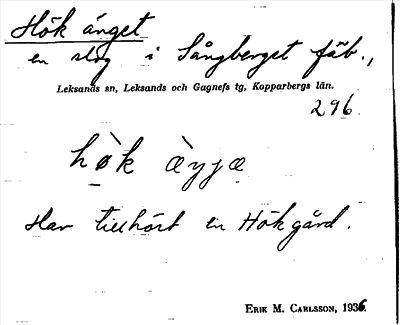 Hök änget
en slog i Sångberget fäb.,
Leksands sn, Leksands och Gagnefs tg, Kopparbergs län.
296.
hø̀k æ̀yjæ
Har tillhört en Hökgård.
ERIK M. CARLSSON, 1936.